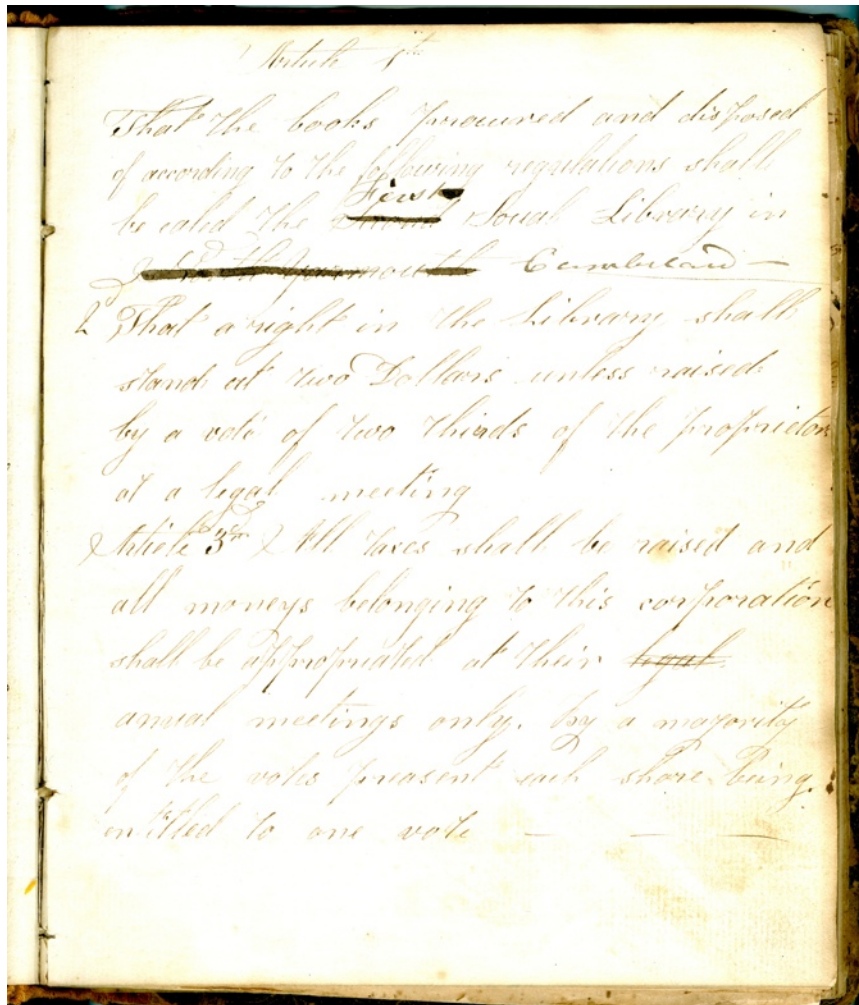 Article 1st
That the books procured and disposed
of according to the following regulations shall
First
be caled the Second Social Library in
North Yarmouth Cumberland —
2 That a right in the Library shall
stand at two Dollars unless raised
by a vote of two thirds of the proprietors
at a legal meeting
Article 3rd All taxes shall be raised and
all moneys belonging to this corporation
shall be appropriated at their legal
anual meetings only. By a majority
of the votes preasent each share being
entitled to one vote — — —